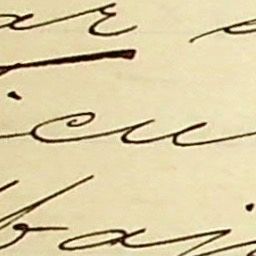 ar
icu
baj